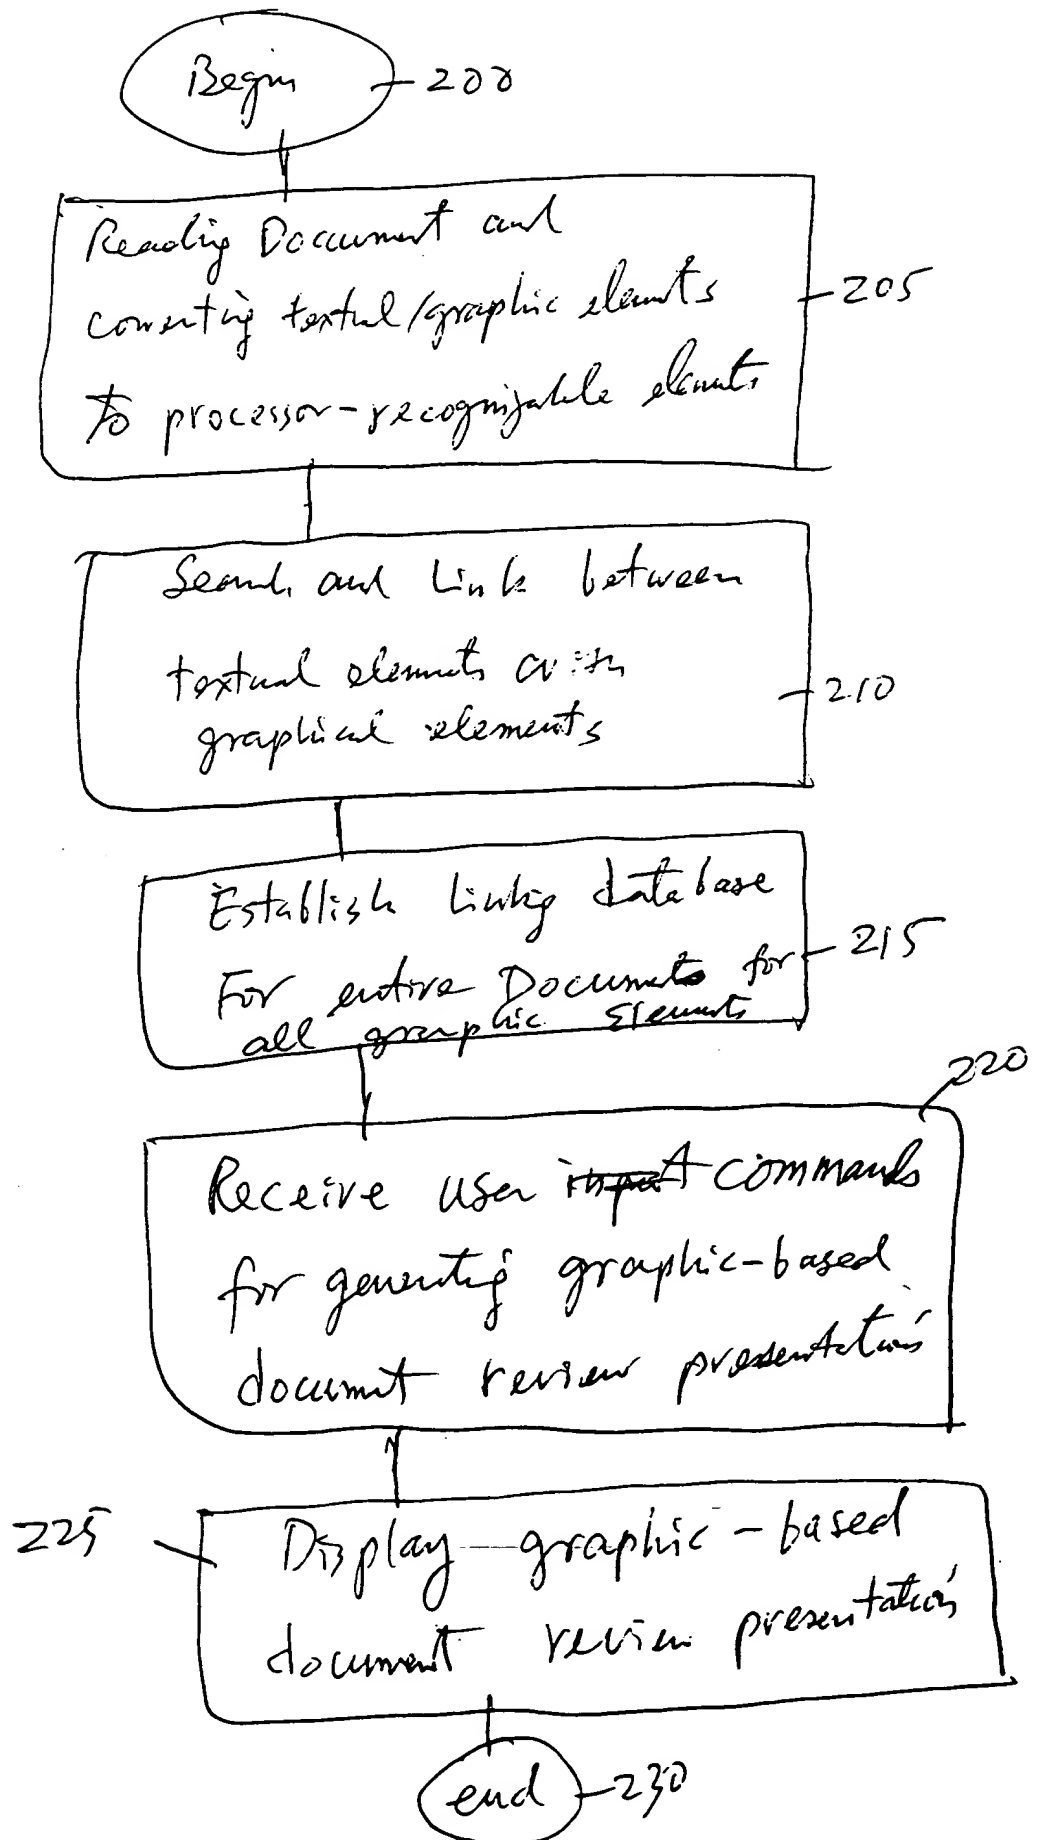 Begin 200
Reading Document and
converting textual/graphic elements 205
to processor-recognizable elements
Search and Link between
textual elements with 210
graphical elements
Establish Linking database
For entire Documents for 215
all graphic Elements
220
Receive user input commands
for generating graphic-based
document review presentations
225 Display graphic-based
document review presentations
end 230